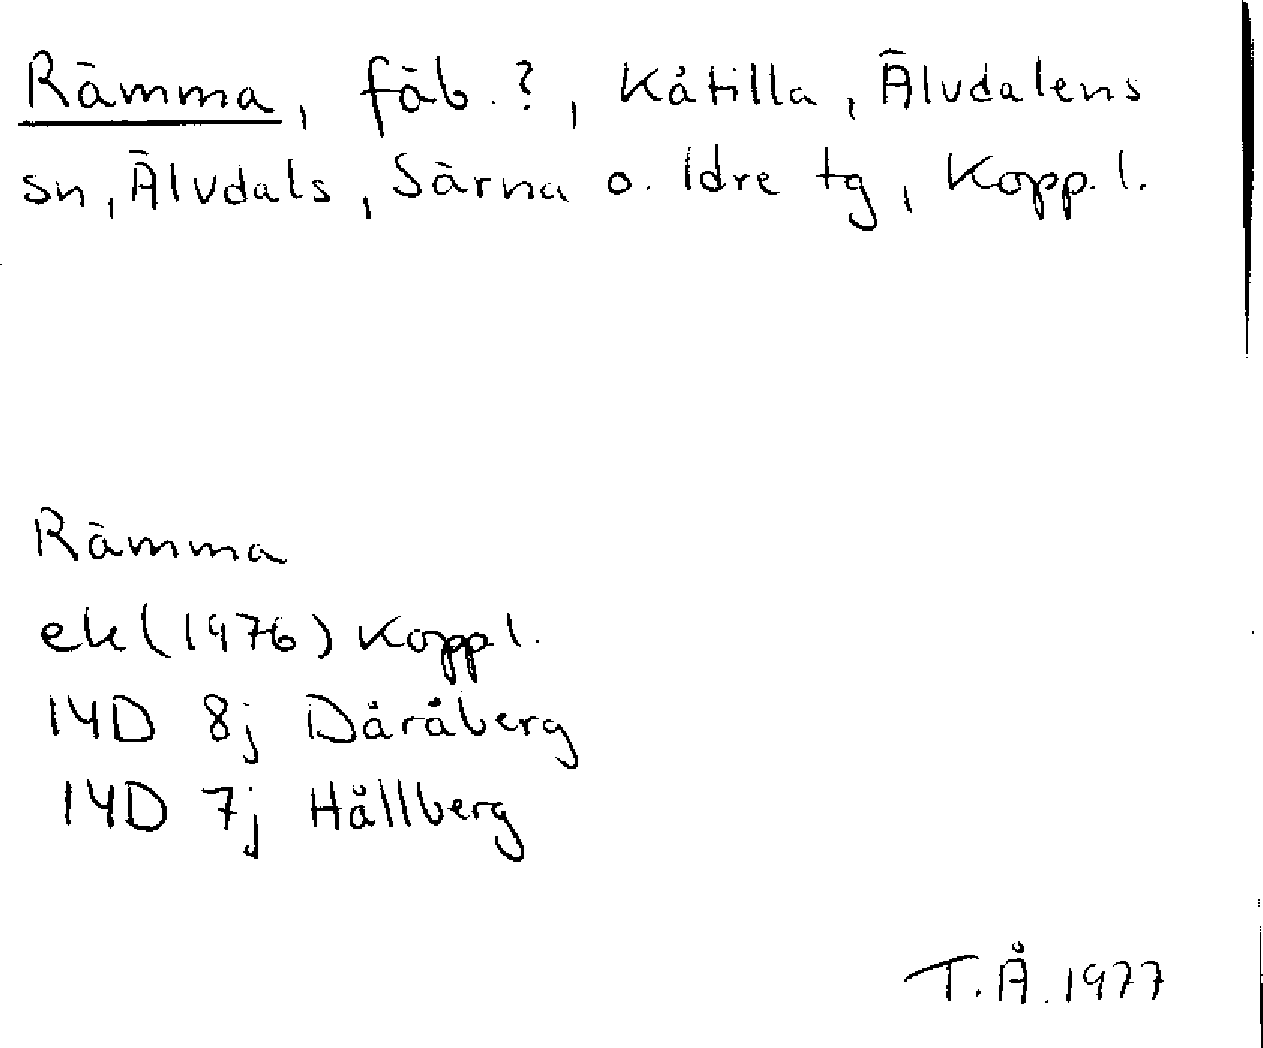 Rämma, fäb. ?, Kåtilla, Älvdalens
sn, Älvdals, Särna o. Idre tg, Kopp. l.
Rämma
ek (1976) Kopp l.
14D 8j Dåråberg
14D 7j Hållberg
T. Å. 1977